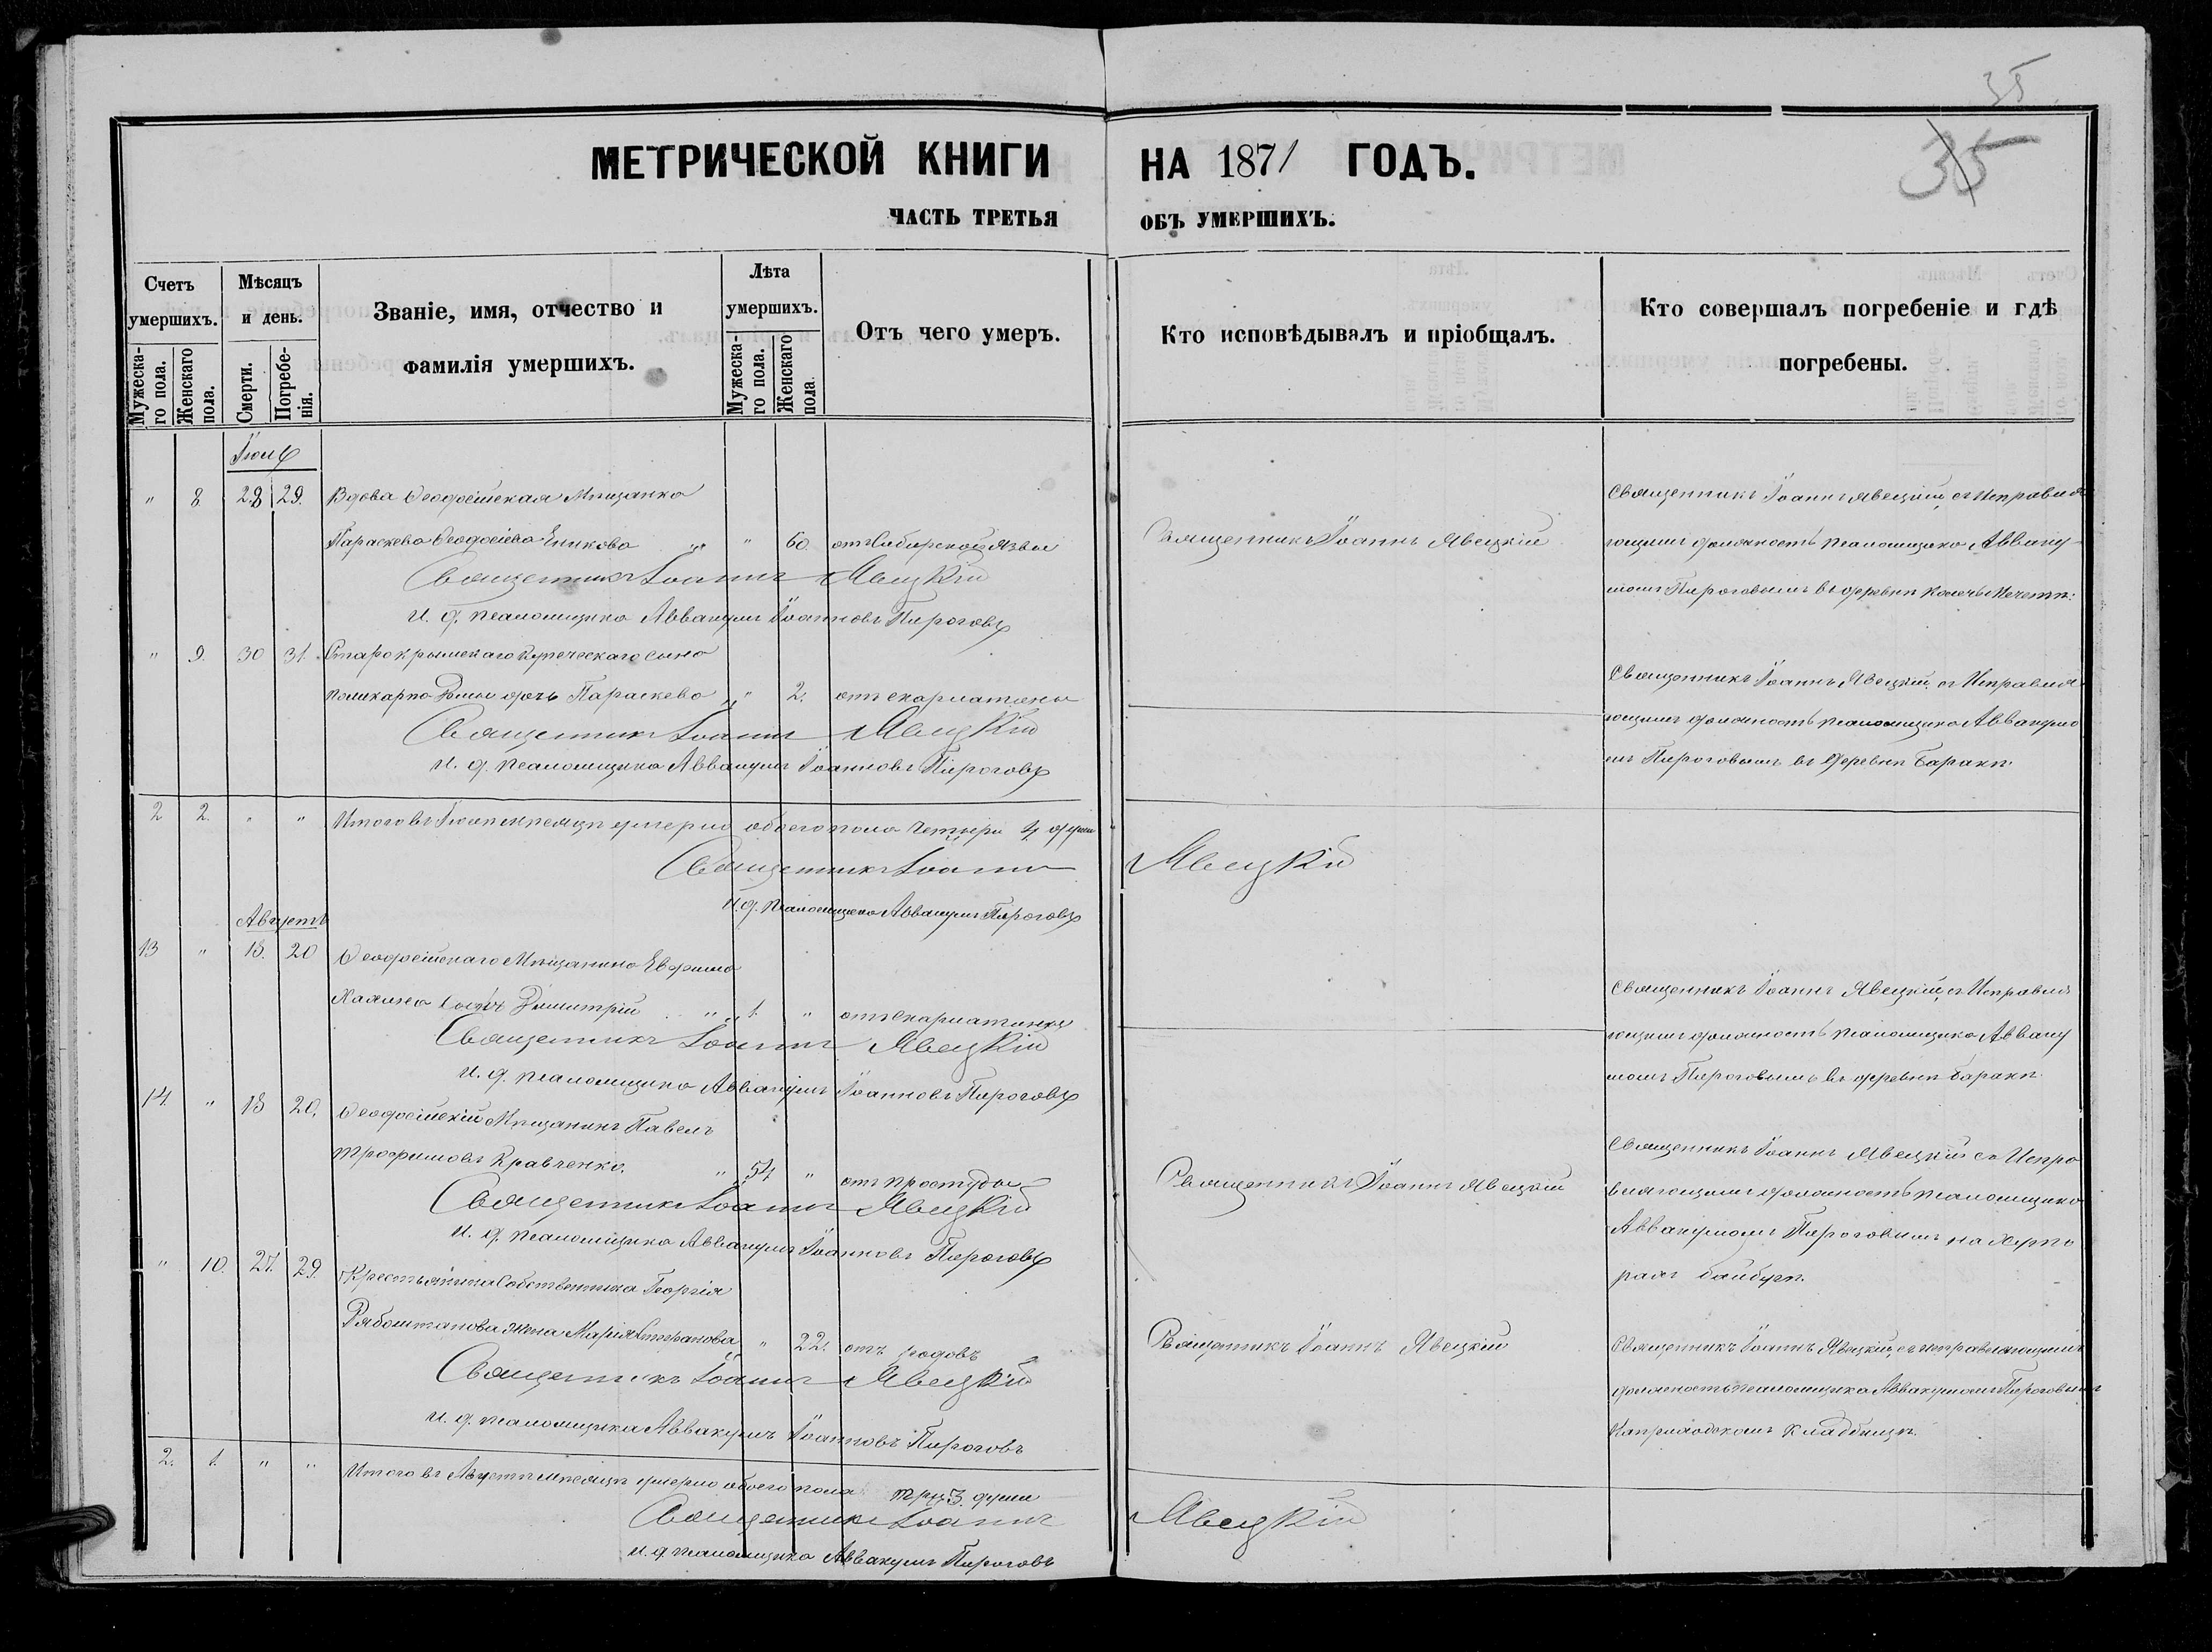 35
35
МЕТРИЧЕСКОЙ КНИГИ НА 1871 ГОДЪ.
ЧАСТЬ ТРЕТЬЯ ОБЪ УМЕРШИХЪ.
Счетъ умершихъ.
Мужескаго пола.
Женскаго пола.
Мѣсяцъ и день.
Смерти.
Погребенія.
Званіе, имя, отчество и фамилія умершихъ.
Лѣта умершихъ.
Мужескаго пола.
Женскаго пола.
Отъ чего умеръ.
Кто исповѣдывалъ и пріобщалъ.
Кто совершалъ погребеніе и гдѣ погребены.
" 8. 28 29. Вдова Ѳеодосійская Мѣщанка
Параскева Ѳеодосіева " 60. отъ Сибирской Язвы
Священникъ Іоаннъ Явецкій
И. д. псаломщика Аввакумъ Іоанновъ Пироговъ
Священникъ Іоаннъ Явецкій
Священникъ Іоаннъ Явецкій, съ Исправля
ющимъ должность псаломщика Авваку
момъ Пироговымъ въ деревнѣ
" 9. 30 31. Старокрымскаго Купеческаго сына
Поликарпа дочь Параскева " 2. отъ скарлатины
Священникъ Іоаннъ Явецкій
И. д. псаломщика Аввакумъ Іоанновъ Пироговъ
Священникъ Іоаннъ Явецкій, съ Исправля
ющимъ должность псаломщика Аввакумо
мъ Пироговымъ въ деревнѣ Баракѣ
2 2. " " Итого въ мѣсяцѣ умерло обоего пола четыри 4 души
Священникъ Іоаннъ Явецкій
И. д. псаломщика Аввакумъ Пироговъ
Августъ
13 " 18. 20 Ѳеодосійскаго Мѣщанина
сынъ Димитрій " 1. " отъ скарлатины
Священникъ Іоаннъ Явецкій
И. д. псаломщика Аввакумъ Іоанновъ Пироговъ
Священникъ Іоаннъ Явецкій, съ Исправля
ющимъ должность псаломщика Авваку
момъ Пироговымъ въ деревнѣ Баракѣ
14. " 18 20. Ѳеодосійскій Мѣщанинъ Павелъ
Трофимовъ Кравченко. " 54 " отъ простуды
Священникъ Іоаннъ Явецкій
И. д. псаломщика Аввакумъ Іоанновъ Пироговъ
Священникъ Іоаннъ Явецкій
Священникъ Іоаннъ Явецкій съ Испра
вляющимъ должность псаломщика
Аввакумомъ Пироговымъ на
" 10. 27. 29. Крестьянина Собственника Георгія
Рябоштанова жена Марія " 22. отъ родовъ
Священникъ Іоаннъ Явецкій
И. д. псаломщика Аввакумъ Іоанновъ Пироговъ
Священникъ Іоаннъ Явецкій
Священникъ Іоаннъ Явецкій, съ исправляющимъ
должность псаломщика Аввакумомъ Пироговымъ
На приходскомъ кладбищѣ.
2. 1. " " Итого въ Августѣ мѣсяцѣ умерло обоего пола три 3. души
Священникъ Іоаннъ Явецкій
И. д. псаломщика Аввакумъ Пироговъ